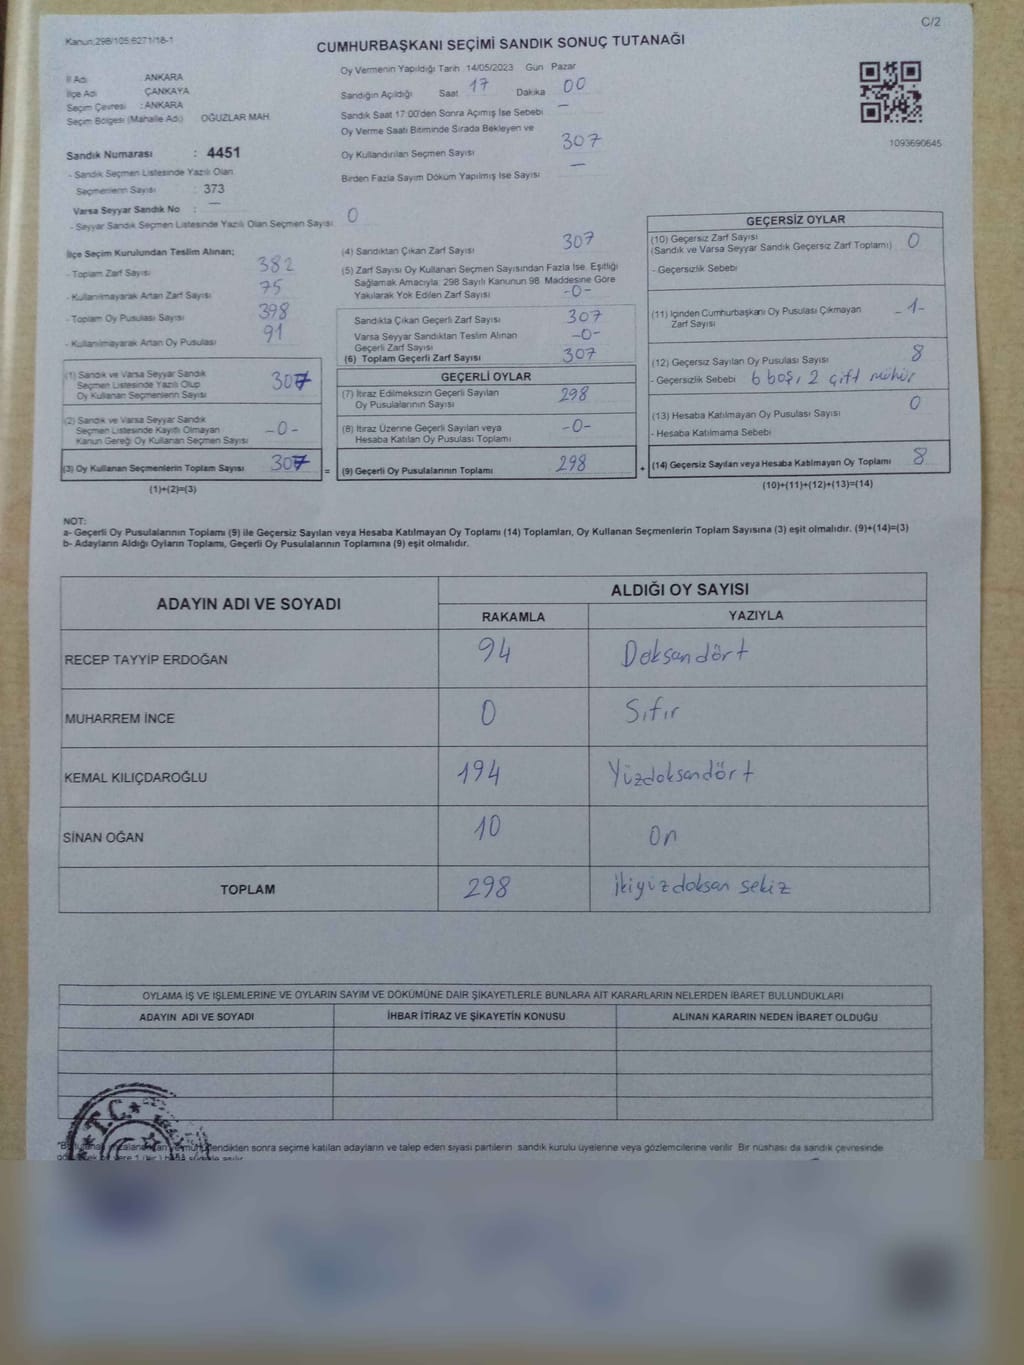 Kanun:298/105;6271/18-1
C/2
CUMHURBAŞKANI SEÇİMİ SANDIK SONUÇ TUTANAĞI
İl Adı ANKARA
İlçe Adı ÇANKAYA
Seçim Çevresi : ANKARA
Seçim Bölgesi (Mahalle Adı) OĞUZLAR MAH.
Sandık Numarası : 4451
- Sandık Seçmen Listesinde Yazılı Olan
Seçmenlerin Sayısı : 373
Varsa Seyyar Sandık No : —
- Seyyar Sandık Seçmen Listesinde Yazılı Olan Seçmen Sayısı : 0
Oy Vermenin Yapıldığı Tarih 14/05/2023 Gün Pazar
Sandığın Açıldığı Saat 17 Dakika 00
Sandık Saat 17.00'den Sonra Açılmış İse Sebebi —
Oy Verme Saati Bitiminde Sırada Bekleyen ve
Oy Kullandırılan Seçmen Sayısı 307
Birden Fazla Sayım Döküm Yapılmış İse Sayısı —
1093690645
İlçe Seçim Kurulundan Teslim Alınan;
- Toplam Zarf Sayısı 382
- Kullanılmayarak Artan Zarf Sayısı 75
- Toplam Oy Pusulası Sayısı 398
- Kullanılmayarak Artan Oy Pusulası 91
(1) Sandık ve Varsa Seyyar Sandık
Seçmen Listesinde Yazılı Olup
Oy Kullanan Seçmenlerin Sayısı 307
(2) Sandık ve Varsa Seyyar Sandık
Seçmen Listesinde Kayıtlı Olmayan
Kanun Gereği Oy Kullanan Seçmen Sayısı -0-
(3) Oy Kullanan Seçmenlerin Toplam Sayısı 307
(1)+(2)=(3)
=
(4) Sandıktan Çıkan Zarf Sayısı 307
(5) Zarf Sayısı Oy Kullanan Seçmen Sayısından Fazla İse, Eşitliği
Sağlamak Amacıyla, 298 Sayılı Kanunun 98. Maddesine Göre
Yakılarak Yok Edilen Zarf Sayısı -0-
Sandıkta Çıkan Geçerli Zarf Sayısı 307
Varsa Seyyar Sandıktan Teslim Alınan
Geçerli Zarf Sayısı -0-
(6) Toplam Geçerli Zarf Sayısı 307
GEÇERLİ OYLAR
(7) İtiraz Edilmeksizin Geçerli Sayılan
Oy Pusulalarının Sayısı 298
(8) İtiraz Üzerine Geçerli Sayılan veya
Hesaba Katılan Oy Pusulası Toplamı -0-
(9) Geçerli Oy Pusulalarının Toplamı 298
+
GEÇERSİZ OYLAR
(10) Geçersiz Zarf Sayısı
(Sandık ve Varsa Seyyar Sandık Geçersiz Zarf Toplamı) 0
- Geçersizlik Sebebi
(11) İçinden Cumhurbaşkanı Oy Pusulası Çıkmayan
Zarf Sayısı -1-
(12) Geçersiz Sayılan Oy Pusulası Sayısı 8
- Geçersizlik Sebebi 6 boş, 2 çift mühür
(13) Hesaba Katılmayan Oy Pusulası Sayısı 0
- Hesaba Katılmama Sebebi
(14) Geçersiz Sayılan veya Hesaba Katılmayan Oy Toplamı 8
(10)+(11)+(12)+(13)=(14)
NOT:
a- Geçerli Oy Pusulalarının Toplamı (9) ile Geçersiz Sayılan veya Hesaba Katılmayan Oy Toplamı (14) Toplamları, Oy Kullanan Seçmenlerin Toplam Sayısına (3) eşit olmalıdır. (9)+(14)=(3)
b- Adayların Aldığı Oyların Toplamı, Geçerli Oy Pusulalarının Toplamına (9) eşit olmalıdır.
ADAYIN ADI VE SOYADI ALDIĞI OY SAYISI
RAKAMLA YAZIYLA
RECEP TAYYİP ERDOĞAN 94 Doksandört
MUHARREM İNCE 0 Sıfır
KEMAL KILIÇDAROĞLU 194 Yüzdoksandört
SİNAN OĞAN 10 On
TOPLAM 298 İkiyüzdoksan sekiz
OYLAMA İŞ VE İŞLEMLERİNE VE OYLARIN SAYIM VE DÖKÜMÜNE DAİR ŞİKAYETLERLE BUNLARA AİT KARARLARIN NELERDEN İBARET BULUNDUKLARI
ADAYIN ADI VE SOYADI İHBAR İTİRAZ VE ŞİKAYETİN KONUSU ALINAN KARARIN NEDEN İBARET OLDUĞU
T.C.
sonra seçime katılan adayların ve talep eden siyasi partilerin sandık kurulu üyelerine veya gözlemcilerine verilir. Bir nüshası da sandık çevresinde